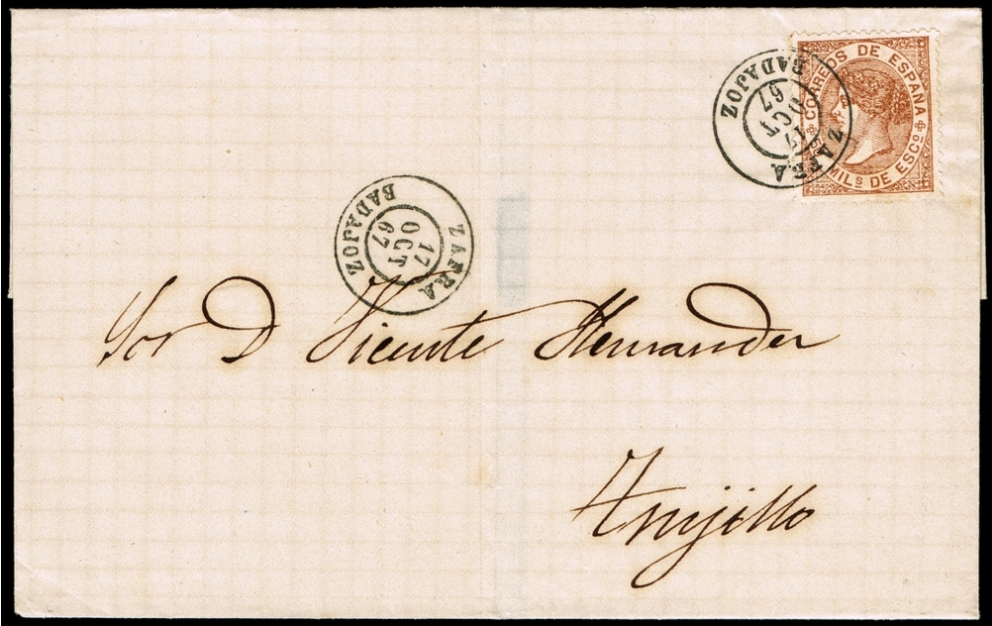 CORREOS DE ESPAÑA
MILS DE ESCO
ZAFRA
17
OCT
67
BADAJOZ
ZAFRA
17
OCT
67
BADAJOZ
Sor D Vicente Hernandez
Trujillo